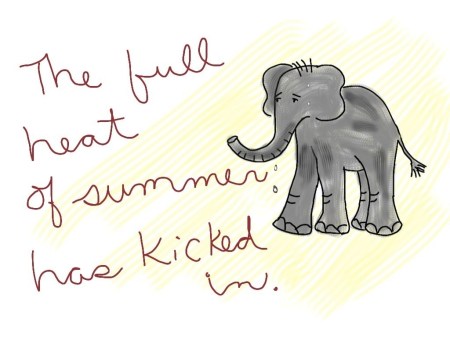 The full
heat
of summer
has kicked
in.